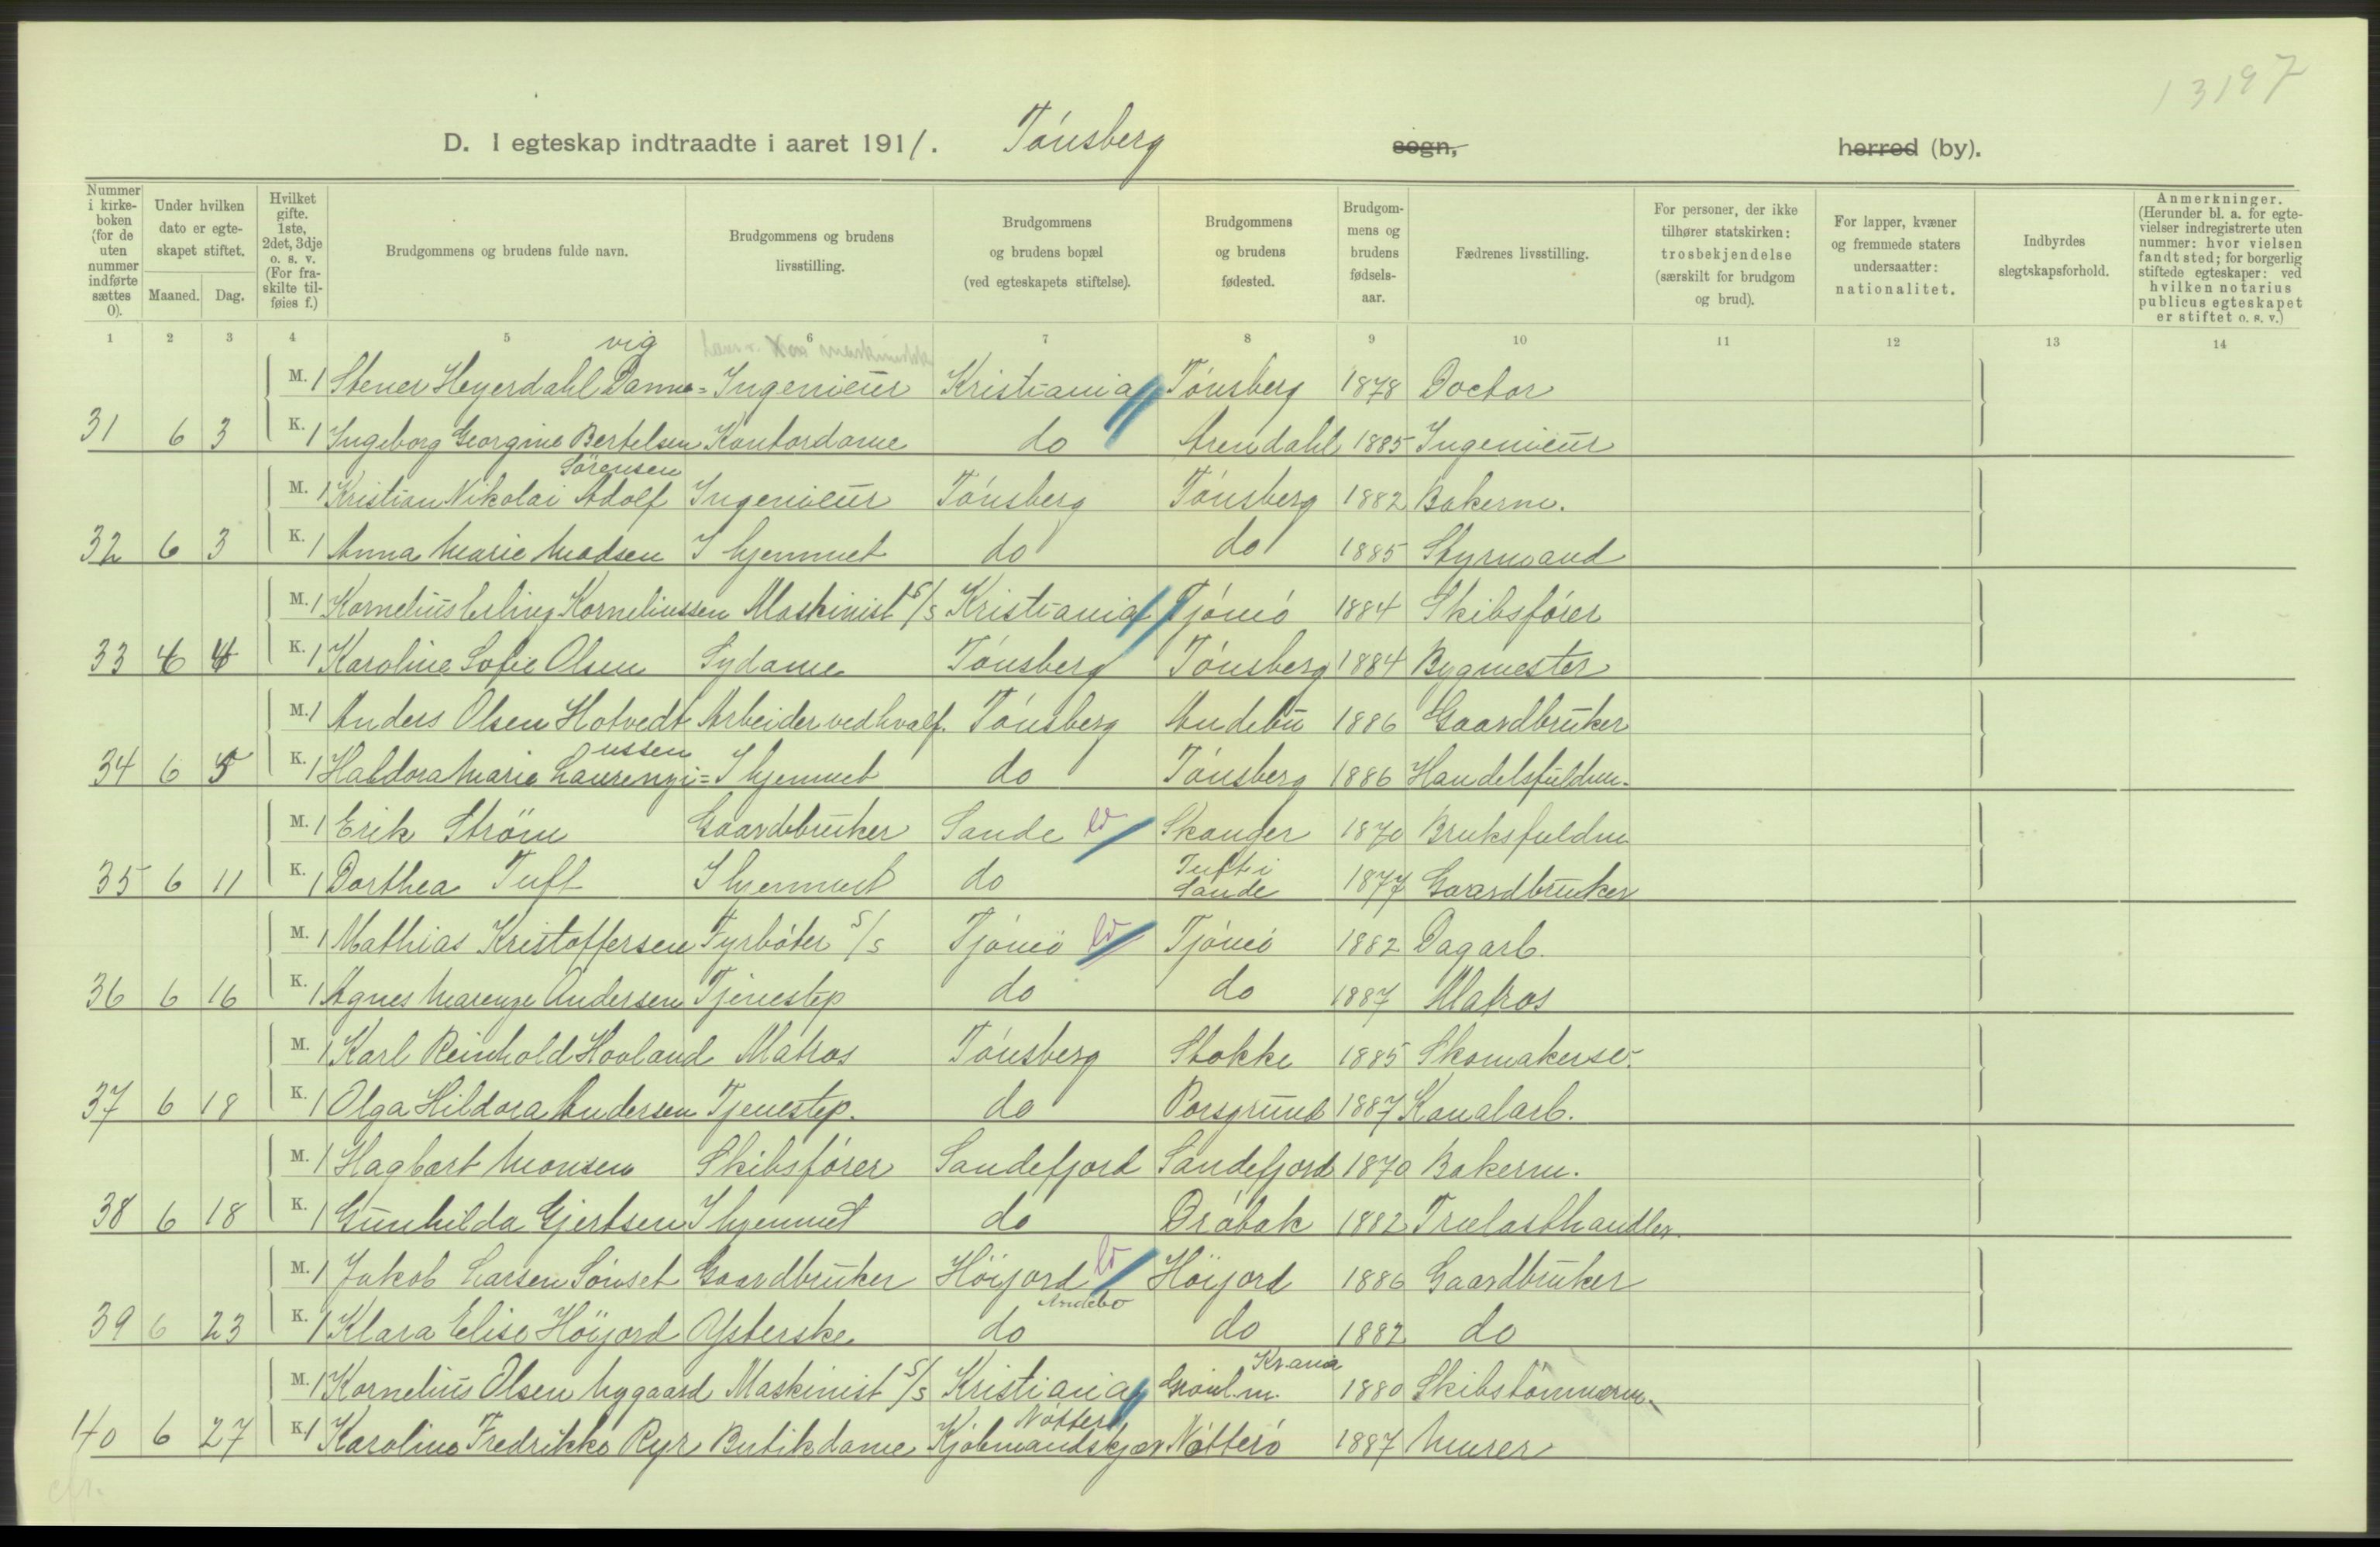 13197
D. I egteskap indtraadte i aaret 1911. Tönsberg sogn, herred (by).
Nummer i kirkeboken (for de uten nummer indførte sættes 0).
Under hvilken dato er egteskapet stiftet.
Maaned. Dag.
Hvilket gifte. 1ste, 2det, 3dje o. s. v. (For fraskilte tilføies f.)
Brudgommens og brudens fulde navn.
Brudgommens og brudens livsstilling.
Brudgommens og brudens bopæl (ved egteskapets stiftelse).
Brudgommens og brudens fødested.
Brudgommens og brudens fødselsaar.
Fædrenes livsstilling.
For personer, der ikke tilhører statskirken: trosbekjendelse (særskilt for brudgom og brud).
For lapper, kvæner og fremmede staters undersaatter: nationalitet.
Indbyrdes slegtskapsforhold.
Anmerkninger. (Herunder bl. a. for egtevielser indregistrerte uten nummer: hvor vielsen fandt sted; for borgerlig stiftede egteskaper: ved hvilken notarius publicus egteskapet er stiftet o. s. v.)
1 2 3 4 5 6 7 8 9 10 11 12 13 14
M. 1 Stener Heyerdahl Dannevig Ingenieur Kristiania Tönsberg 1878 Doctor
31 6 3 K. 1 Ingeborg Georgine Bertelsen Kontordame do Arendahl 1885 Ingenieur
M. 1 Kristian Nikolai Adolf Sörensen Ingenieur Tönsberg Tönsberg 1882 Bakerm.
32 6 3 K. 1 Anna Marie Madsen I hjemmet do do 1885 Styrmand
M. 1 Kornelius Erling Korneliussen Maskinist S/S Kristiania Tjömö 1884 Skibsförer
33 6 4 K. 1 Karoline Sofie Olsen Sydame Tönsberg Tönsberg 1884 Bygmester
M. 1 Anders Olsen Hotvedt Arbeider ved hvalf. Tönsberg Andebu 1886 Gaardbruker
34 6 5 K. 1 Haldora Marie Laurenziussen I hjemmet do Tönsberg 1886 Handelsfuldm.
M. 1 Erik Ström Gaardbruker Sande ld Skauger 1870 Bruksfuldm
35 6 11 K. 1 Dorthea Tuft I hjemmet do Tuft i Sande 1877 Gaardbruker
M. 1 Mathias Kristoffersen Fyrböter S/S Tjömö ld Tjömö 1882 Dagarb.
36 6 16 K. 1 Agnes Marenze Andersen Tjenestep do do 1887 Matros
M. 1 Karl Reinhold Hovland Matros Tönsberg Stokke 1885 Skomakersv.
37 6 18 K. 1 Olga Hildora Andersen Tjenestep. do Porsgrund 1887 Kanalarb.
M. 1 Hagbart Monsen Skibsförer Sandefjord Sandefjord 1870 Bakerm.
38 6 18 K. 1 Gunhilda Gjertsen I hjemmet do Dröbak 1882 Trælasthandler
M. 1 Jakob Larsen Sönset Gaardbruker Höijord ld Höijord 1886 Gaardbruker
39 6 23 K. 1 Klara Elise Höijord Ysterske do Andebo do 1882 do
M. 1 Kornelius Olsen Nygaard Maskinist S/S Kristiania Krania 1880 Skibstömmerm.
40 6 27 K. 1 Karoline Fredrikke Ryr Butikdame Kjöbmandskjær Nötterö Nötterö 1887 Murer